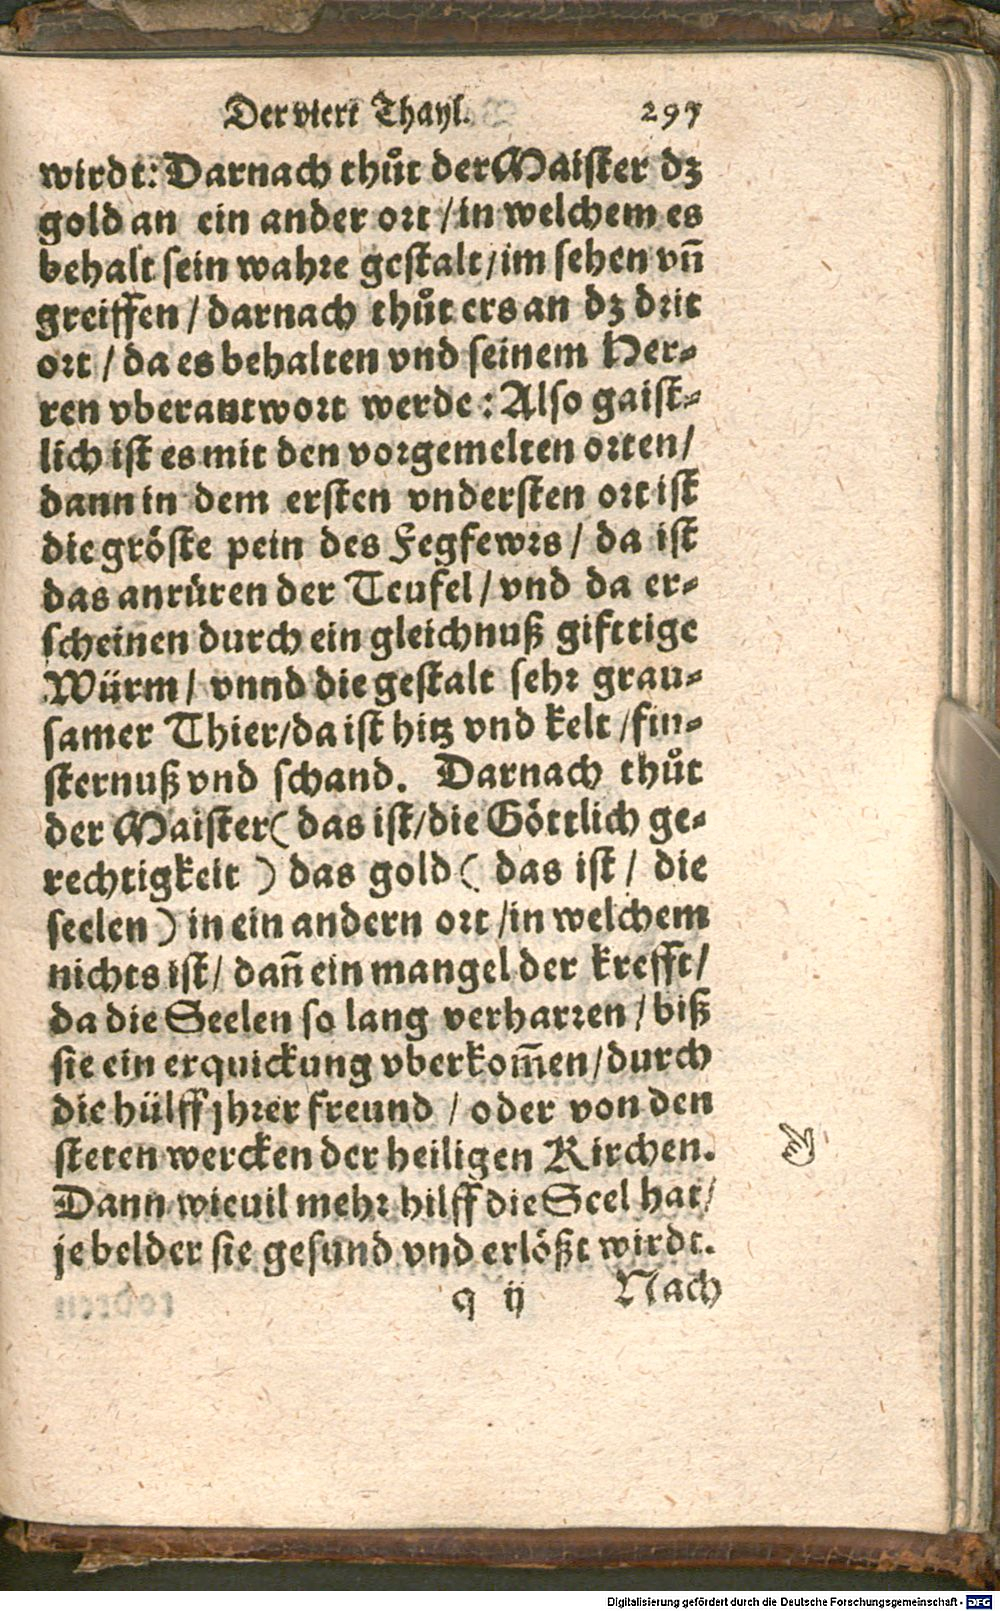 Der viert Thayl. 297
wirdt: Darnach thůt der Maister dz
gold an ein ander ort / in welchem es
behalt sein wahre gestalt / im sehen vñ
greiffen / darnach thůt ers an dz drit
ort / da es behalten vnd seinem Her-
ren vberantwort werde: Also gaist-
lich ist es mit den vorgemelten orten /
dann in dem ersten vndersten ort ist
die gröste pein des Fegfewrs / da ist
das anrüren der Teufel / vnd da er-
scheinen durch ein gleichnuß gifttige
Würm / vnnd die gestalt sehr grau-
samer Thier / da ist hitz vnd kelt / fin-
sternuß vnd schand. Darnach thůt
der Maister ( das ist / die Göttlich ge-
rechtigkeit ) das gold ( das ist / die
seelen ) in ein andern ort / in welchem
nichts ist / dañ ein mangel der krefft /
da die Seelen so lang verharren / biß
sie ein erquickung vberkom̃en / durch
die hülff jhrer freund / oder von den
steten wercken der heiligen Kirchen.
Dann wieuil mehr hilff die Seel hat /
je belder sie gesund vnd erlößt wirdt.
q ij Nach
Digitalisierung gefördert durch die Deutsche Forschungsgemeinschaft - DFG